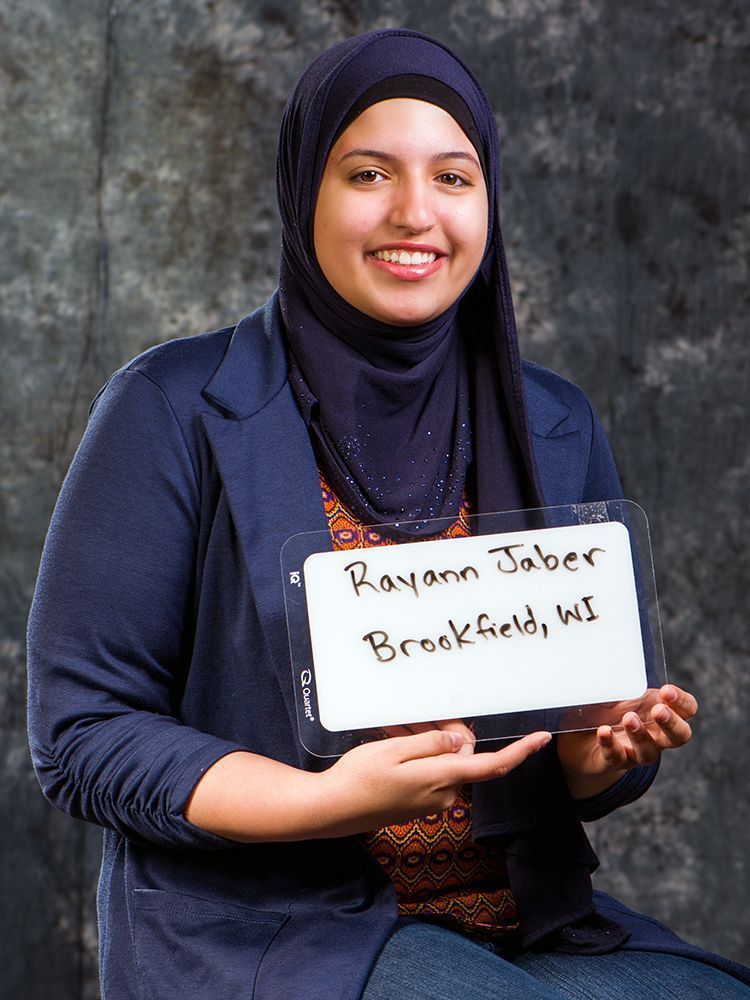 Rayann Jaber
Brookfield, WI
IQ™
Quartet®